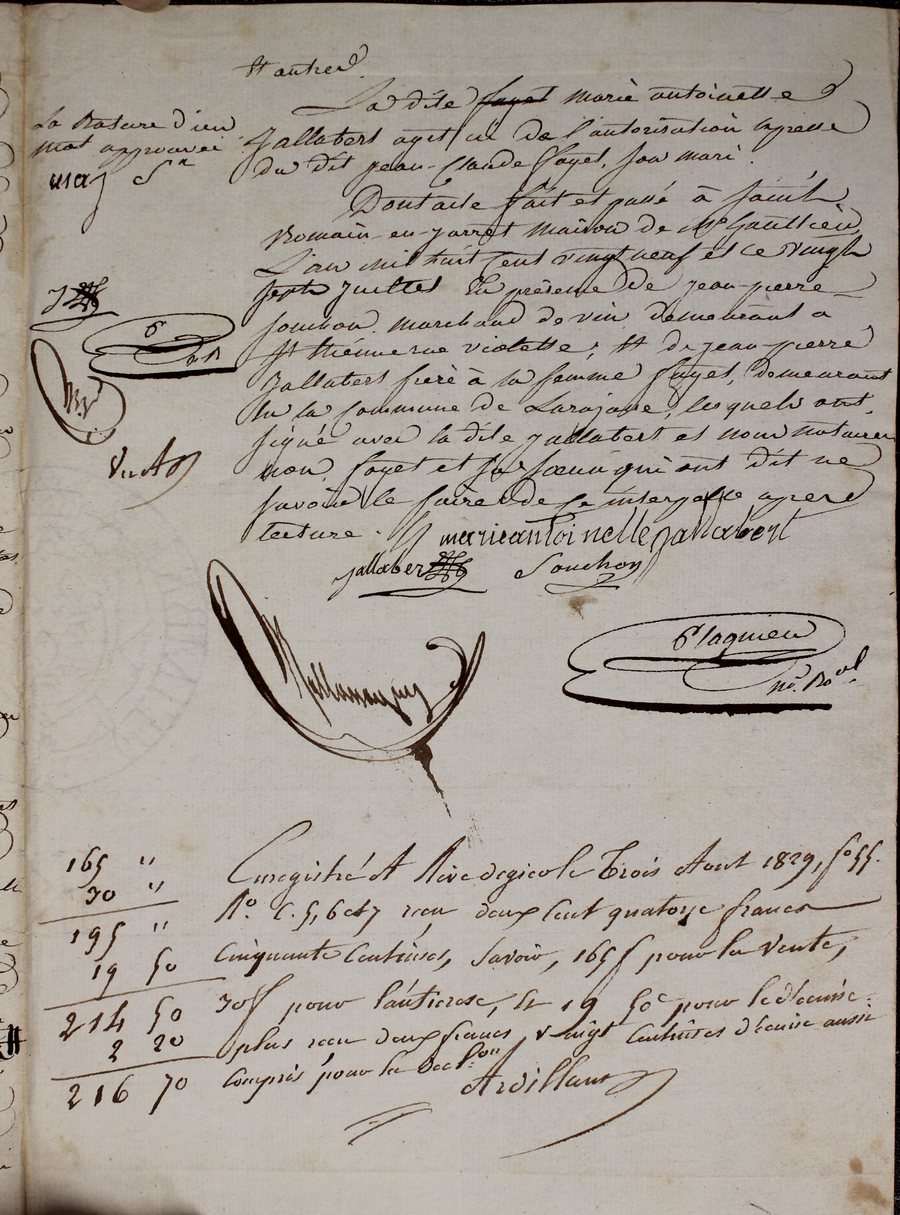 La rature d'un
mot approuvée
La dite fayet marie antoinette
Jallabert agit ici de l'autorisation expresse
du dit jean-Claude fayet, son mari.
Dont acte fait et passé à Saint
Romain-en-jarret maison de Mr
L'an mil huit cent vingt neuf et le vingt
sept juillet En présence de jean-pierre
Souchon marchand de vin demeurant à
St Etienne rue violette, Et de jean-pierre
Jallabert frère à la femme fayet, demeurant
en la Commune de Larajasse, lesquels ont
signé avec la dite Jallabert et nous notaires
non fayet et sa soeur qui ont dit ne
savoir le faire de ce interpellés après
lecture.
marieantoinette Jallabert
jallaber Souchon
no. Roal.
165 "
30 "
195 "
19 50
214 50
2 20
216 70
Enregistré A Rive de gier le Trois Aout 1829, fo 55.
Ro. C. 5, 6 et 7 reçu deux Cent quatorze francs
Cinquante Centimes, Savoir, 165f pour la Vente,
30f pour l'anticrese, Et 19 50c pour le dixieme.
plus reçu deux francs vingt Centimes dixieme aussi
Compris pour la decl.on
Ardillon